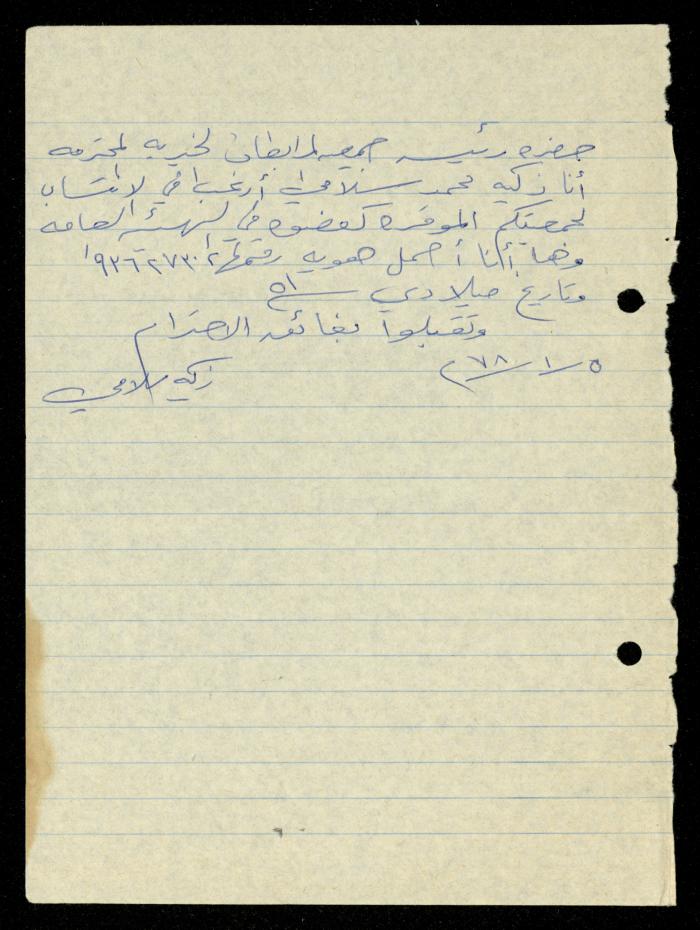 حضره رئيسه جمعيه المرابطات الخيريه المحترمه
أنا زكيه محمد سلامي أرغب في الانتساب
لجمعيتكم الموقره كعضوه في الهيئه العامه
وها أنا أحمل هويه رقمها
وتاريخ ميلادي ٥١
وتقبلوا بفائق الاحترام
٧٨/١/٥
زكيه سلامي